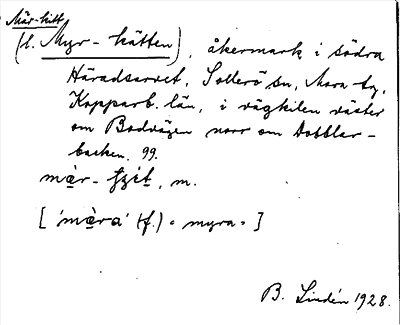 Mär-kitt
(l. Myr-kätten), åkermark i södra
Häradsarvet, Sollerö sn, Mora tg,
Kopparb. län, i vägkilen väster
om Bodvägen norr om Dobblar-
backen. 99.
mär-, m.
['mära' (f.) = myra.]
B. Lindén 1928.